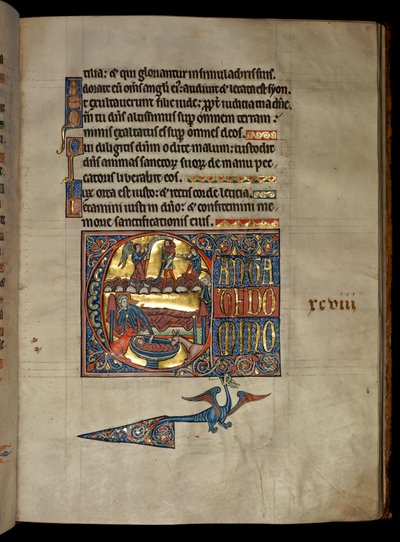 tilia: & qui gloriantur in simulachris suis.
Adorate eū om̄s angl'i ei': audiuit & letata est syon.
Et exultauerunt filie iude: ꝓpt' iudicia tua dn̄e.
in tu dn̄s altissimus sup̱ omnem terram:
nimis exaltatus es sup̱ omnes deos.
Qui diligitis dn̄m odite malum: custodit
dn̄s animas sanctoꝝ suoꝝ de manu pec
catoris liberabit eos.
Lux orta est iusto: & rectis corde leticia.
Letamini iusti in dn̄o: & confitemini me
morie sanctificationis eius.
CANTA
TE DO
MINO
xcviii